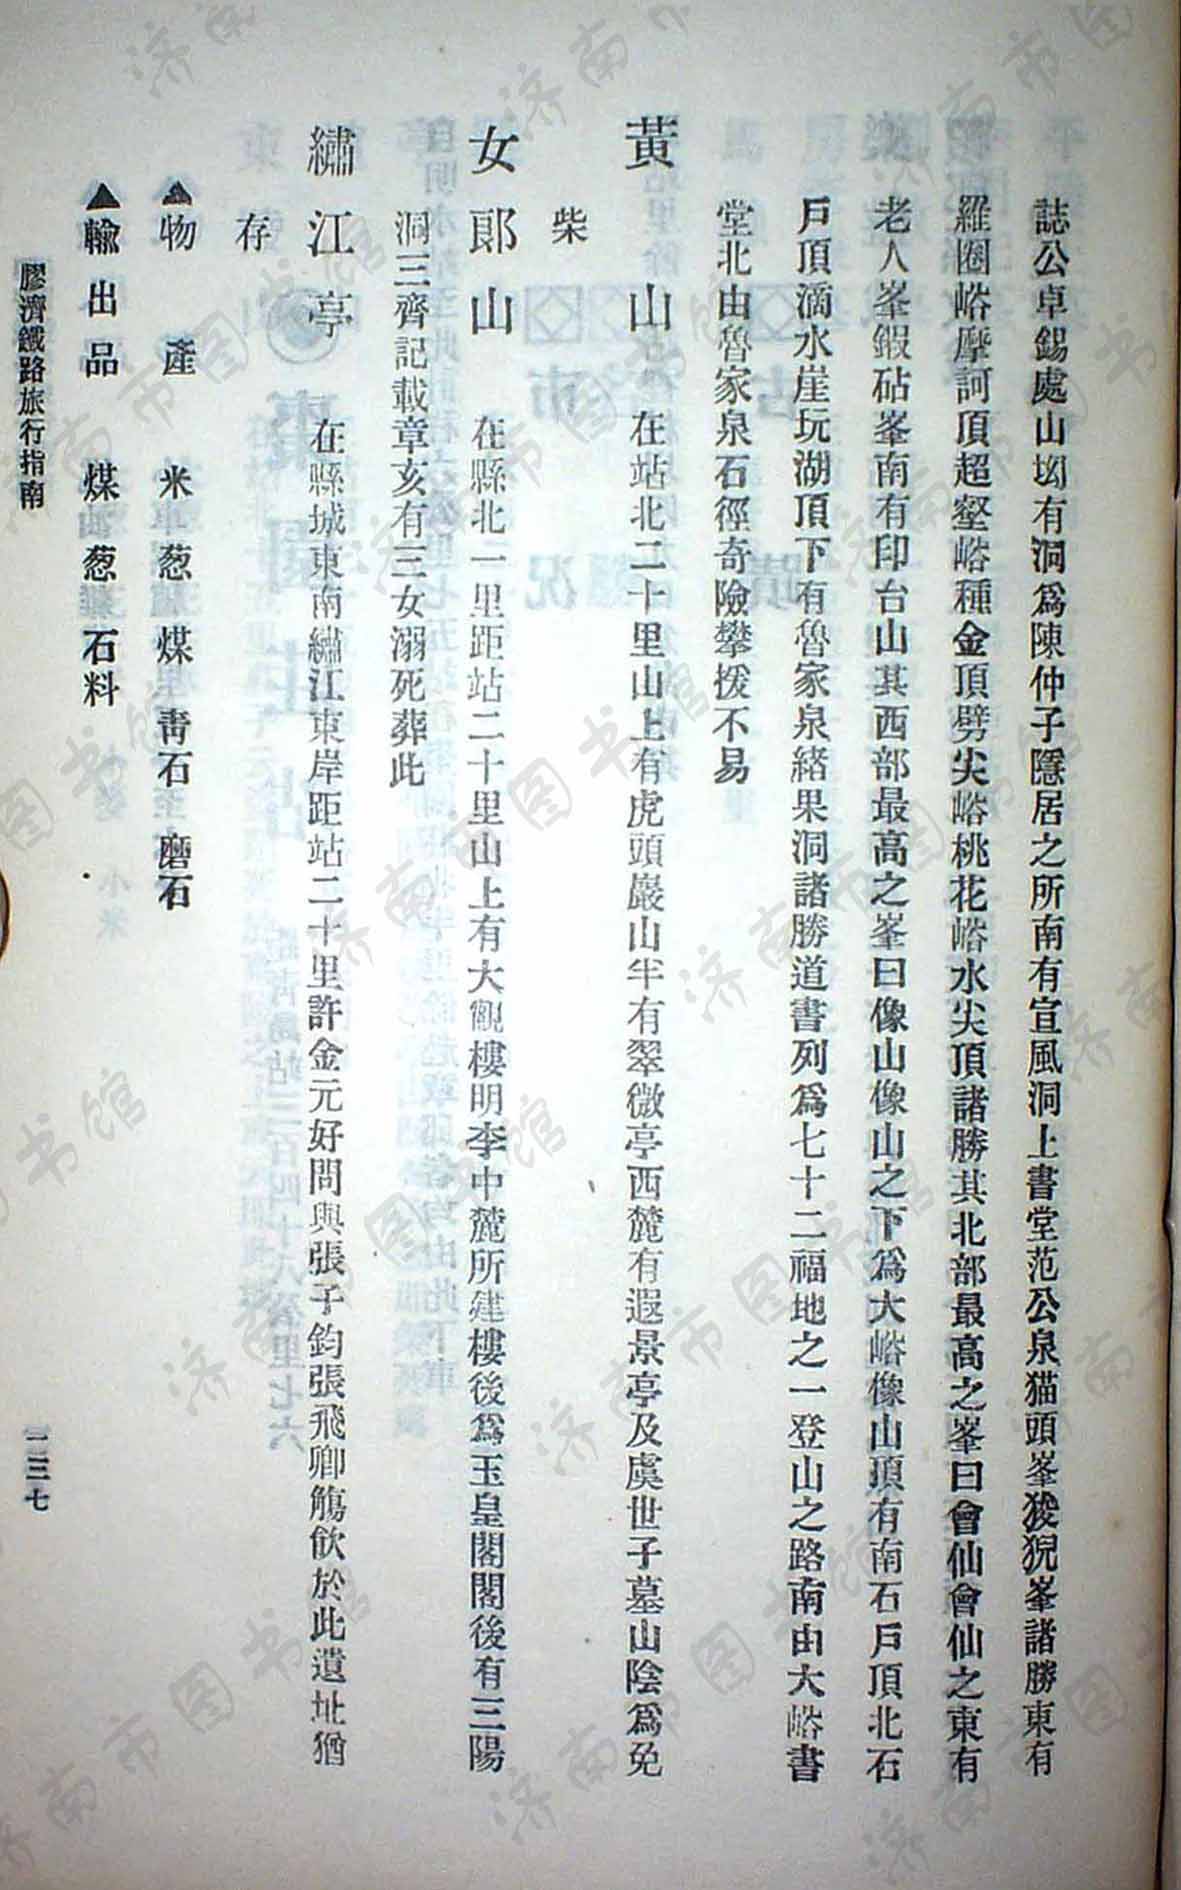 誌公卓錫處山坳有洞爲陳仲子隱居之所南有宣風洞上書堂范公泉猫頭峯狻猊峯諸勝東有
羅圈峪摩訶頂超壑峪種金頂劈尖峪桃花峪水尖頂諸勝其北部最高之峯曰會仙會仙之東有
老人峯鍜砧峯南有印台山其西部最高之峯曰像山像山之下爲大峪像山頂有南石戶頂北石
戶頂滴水崖玩湖頂下有魯家泉緒果洞諸勝道書列爲七十二福地之一登山之路南由大峪書
堂北由魯家泉石徑奇險攀援不易
黃山 在站北二十里山上有虎頭巖山半有翠微亭西麓有遐景亭及虞世子墓山陰爲免
柴
女郞山 在縣北一里距站二十里山上有大觀樓明李中麓所建樓後爲玉皇閣閣後有三陽
洞三齊記載章亥有三女溺死葬此
繡江亭 在縣城東南繡江東岸距站二十里許金元好問與張子鈞張飛卿觴飮於此遺址猶
存
▲物產 米 葱 煤 靑石 磨石
▲輸出品 煤 葱 石料
膠濟鐵路旅行指南
二三七